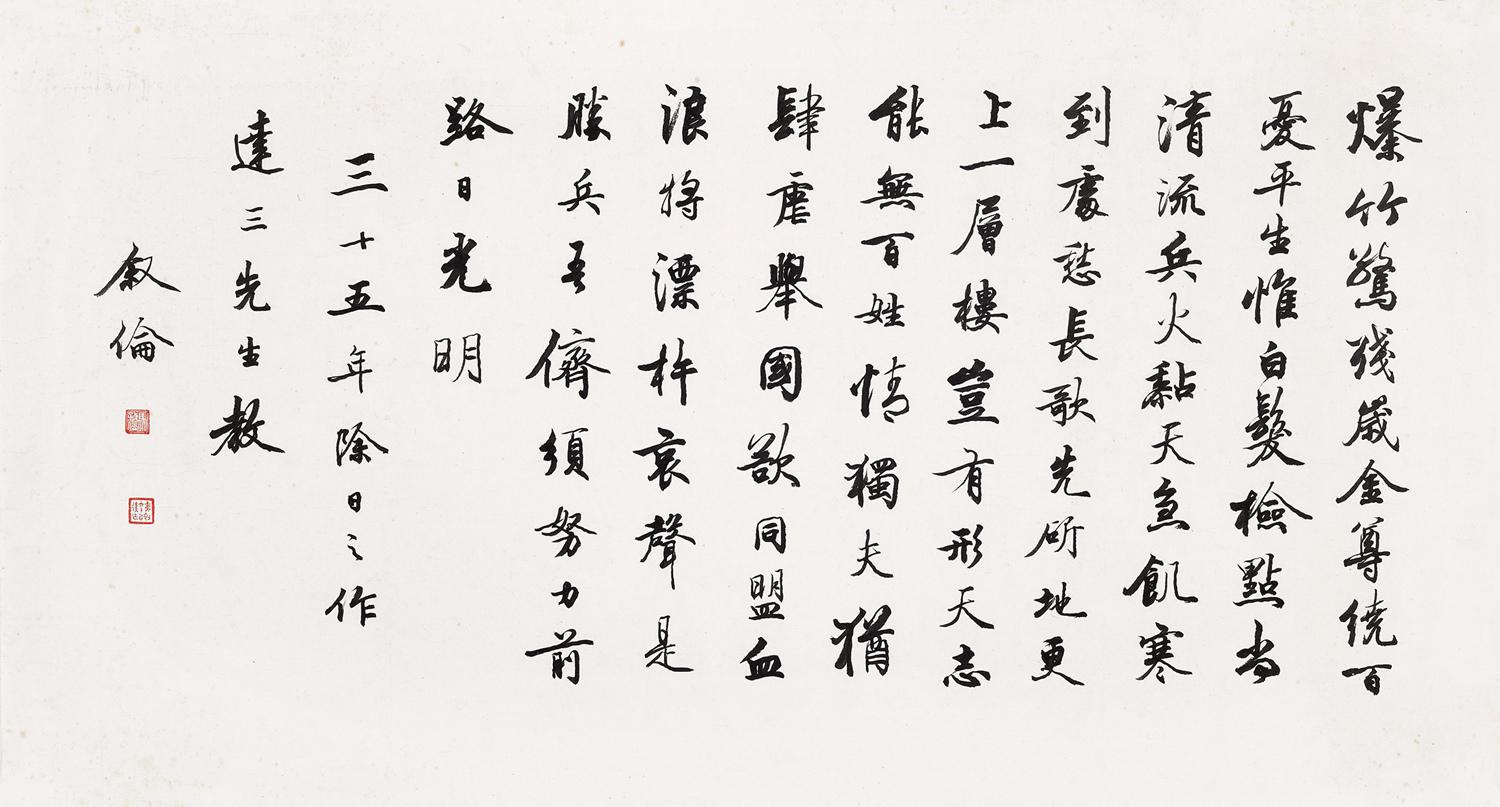 爆竹驚殘歲金尊繞百
憂平生惟白髮檢點尚
清流兵火黏天急飢寒
到處愁長歌先斫地更
上一層樓豈有形天志
能無百姓情獨夫猶
肆虐舉國欲同盟血
浪將漂杵哀聲是
勝兵吾儕須努力前
路日光明
三十五年除日之作
達三先生教
叙倫